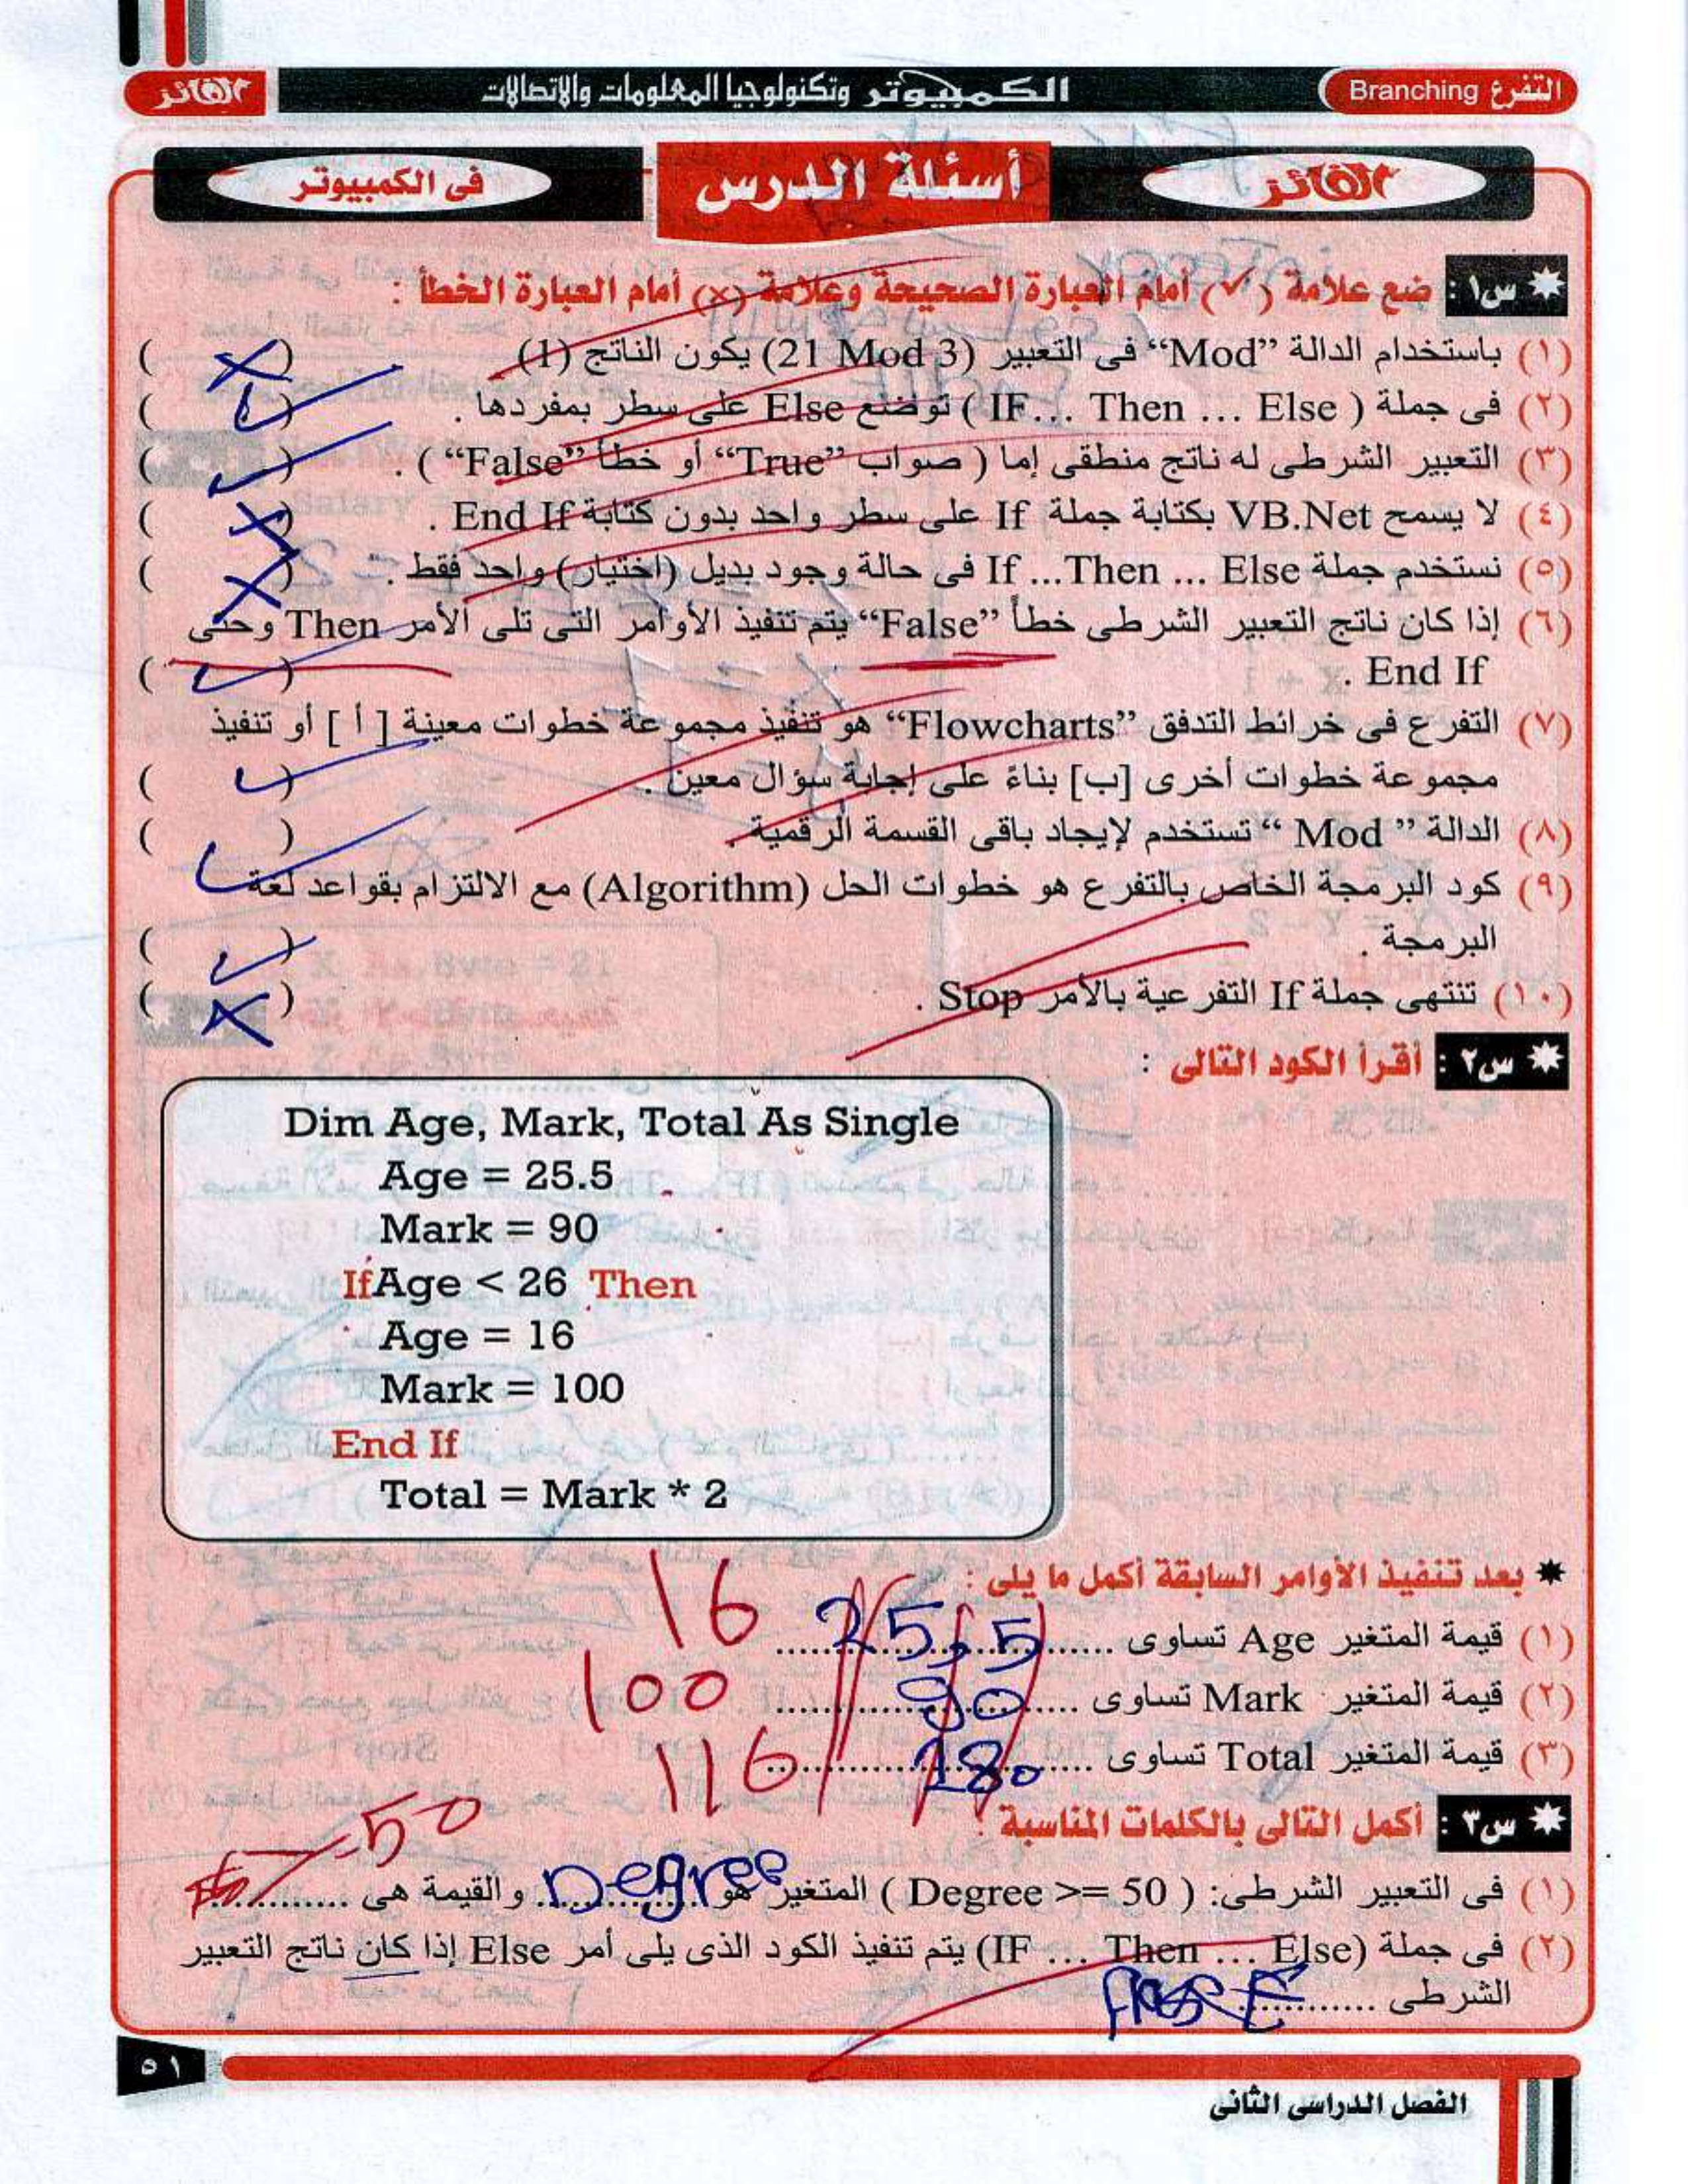 التفرع Branching
الكمبيوتر وتكنولوجيا المعلومات والاتصالات
الفائز
الفائز
أسئلة الدرس
فى الكمبيوتر
س١ : ضع علامة (✓) أمام العبارة الصحيحة وعلامة (×) أمام العبارة الخطأ :
(١) باستخدام الدالة “Mod” فى التعبير (21 Mod 3) يكون الناتج (1) ( × )
(٢) فى جملة ( IF... Then ... Else ) توضع Else على سطر بمفردها . ( ✓ )
(٣) التعبير الشرطى له ناتج منطقى إما ( صواب “True” أو خطأ “False” ) . ( ✓ )
(٤) لا يسمح VB.Net بكتابة جملة If على سطر واحد بدون كتابة End If . ( × )
(٥) نستخدم جملة If ...Then ... Else فى حالة وجود بديل (اختيار) واحد فقط . ( × )
(٦) إذا كان ناتج التعبير الشرطى خطأ “False” يتم تنفيذ الأوامر التى تلى الأمر Then وحتى
End If . ( ✓ )
(٧) التفرع فى خرائط التدفق “Flowcharts” هو تنفيذ مجموعة خطوات معينة [ أ ] أو تنفيذ
مجموعة خطوات أخرى [ب] بناءً على إجابة سؤال معين . ( ✓ )
(٨) الدالة “ Mod ” تستخدم لإيجاد باقى القسمة الرقمية . ( ✓ )
(٩) كود البرمجة الخاص بالتفرع هو خطوات الحل (Algorithm) مع الالتزام بقواعد لغة
البرمجة . ( ✓ )
(١٠) تنتهى جملة If التفرعية بالأمر Stop . ( × )
س٢ : أقرأ الكود التالى :
Dim Age, Mark, Total As Single
Age = 25.5
Mark = 90
If Age < 26 Then
Age = 16
Mark = 100
End If
Total = Mark * 2
بعد تنفيذ الأوامر السابقة أكمل ما يلى :
(١) قيمة المتغير Age تساوى .......... 25,5 16
(٢) قيمة المتغير Mark تساوى .......... 90 100
(٣) قيمة المتغير Total تساوى .......... 180 116
س٣ : أكمل التالى بالكلمات المناسبة :
50
(١) فى التعبير الشرطى: ( Degree >= 50 ) المتغير هو Degree والقيمة هى ..........
(٢) فى جملة (IF ... Then ... Else) يتم تنفيذ الكود الذى يلى أمر Else إذا كان ناتج التعبير
الشرطى ..........
٥١
الفصل الدراسى الثانى